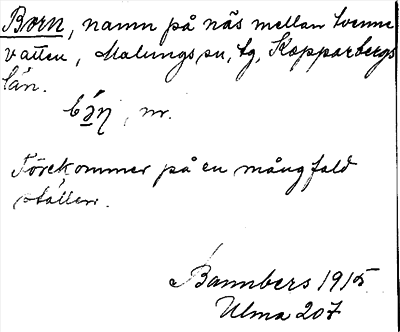 Born, namn på näs mellan tvenne
vatten, Malungs sn, tg, Kopparbergs
län.
, nr.
Förekommer på en mångfald
ställen.
Bannbers 1915
Ulma 207